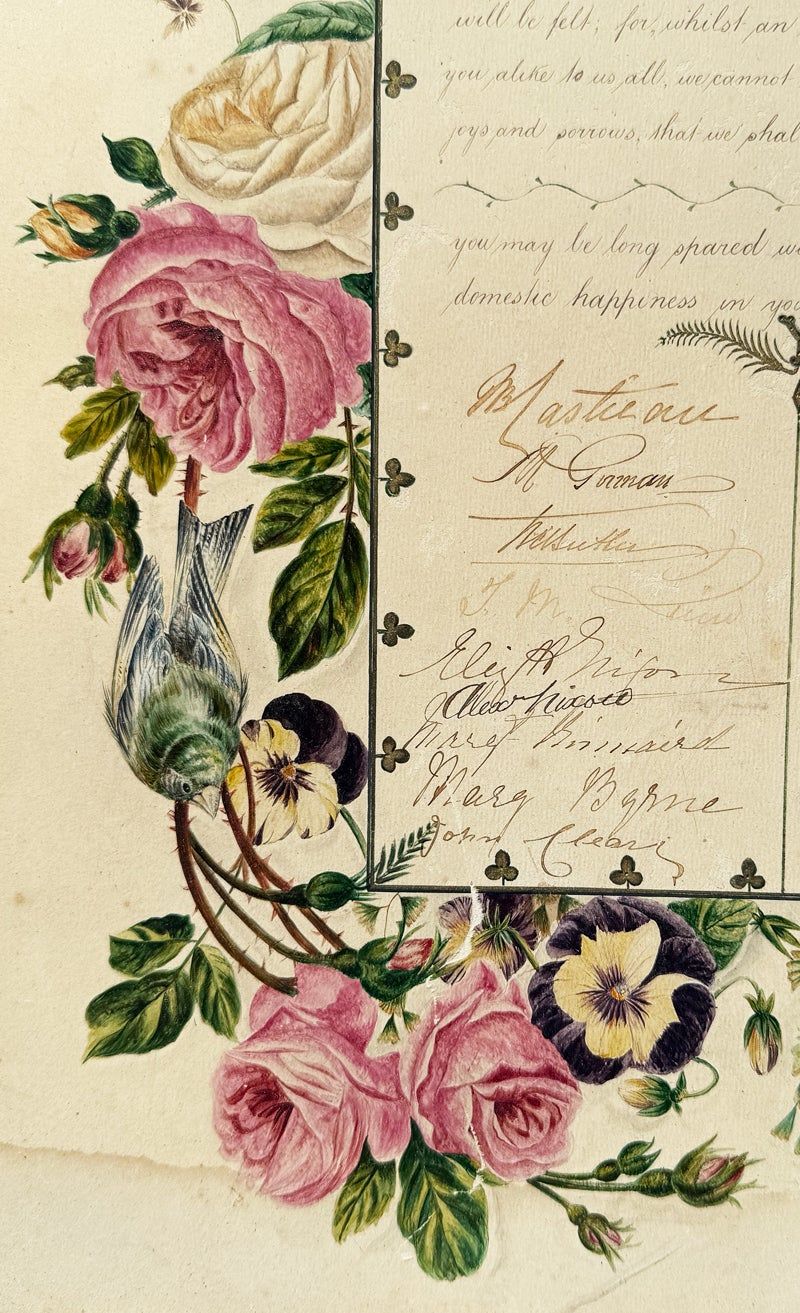 will be felt; for, whilst an
you alike to us all, we cannot
joys and sorrows, that we shal
you may be long spared
domestic happiness in you
Castieau
Gorman
T. M.
Alex Nixon
Kinnaird
Mary Byrne
John Cleary